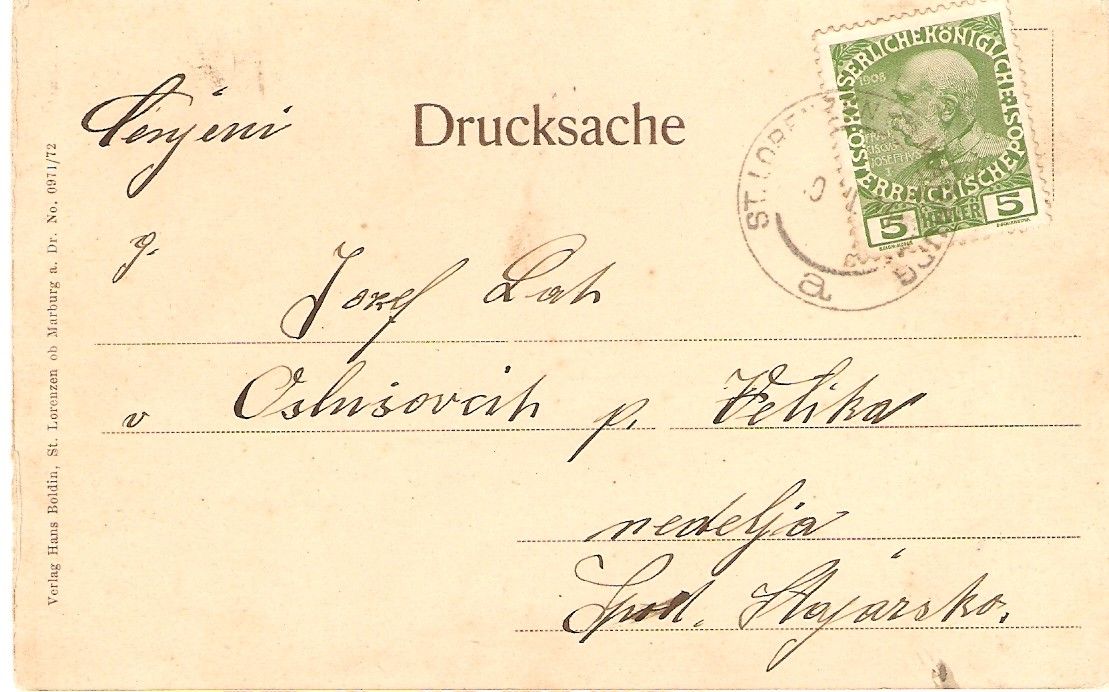 Drucksache
Cenjeni
g.
Jozef Lah
v Oslušovcih p. Velika
nedelja
Spod. Štajersko.
Verlag Hans Boldin, St. Lorenzen ob Marburg a. Dr. No. 0971/72
KAISERLICHE KÖNIGLICHE ÖSTERREICHISCHE POST
1908
5 HELLER 5
ST. LOREN
a